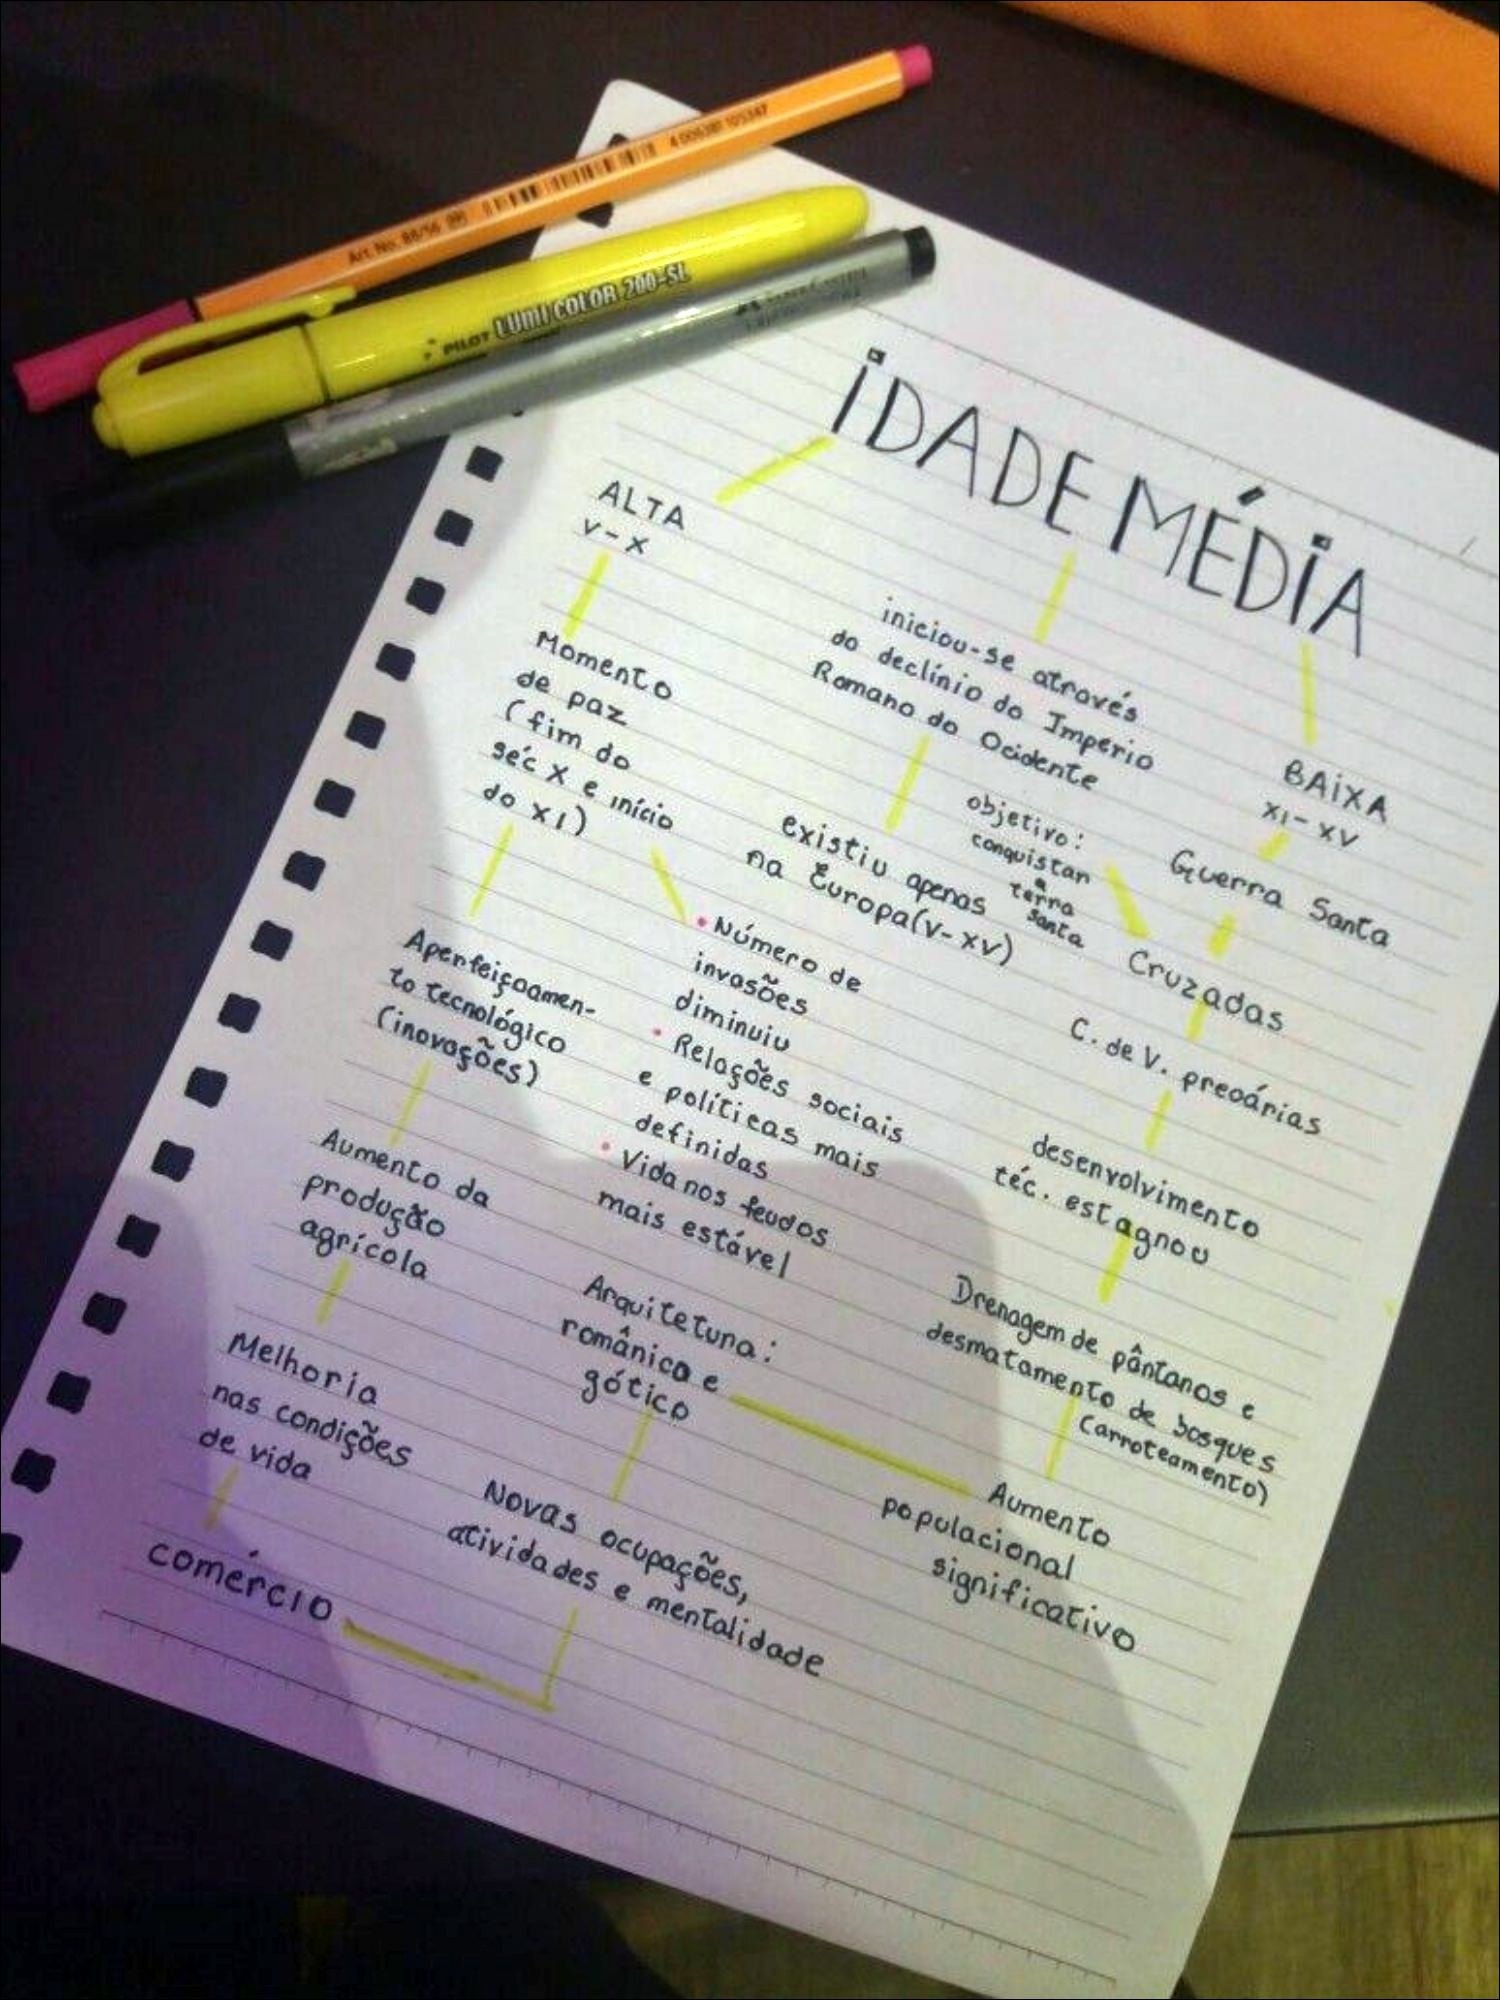 Art. No. 88/56
4 006381 105347
PILOT LUMI COLOR 200-SL
IDADE MÉDIA
ALTA
V-X
Momento
de paz
(fim do
séc X e início
do XI)
Aperfeiçoamen-
to tecnológico
(inovações)
Aumento da
produção
agrícola
Melhoria
nas condições
de vida
comércio
iniciou-se através
do declínio do Império
Romano do Ocidente
existiu apenas
na Europa(V-XV)
• Número de
invasões
diminuiu
• Relações sociais
e políticas mais
definidas
• Vida nos feudos
mais estável
Arquitetura:
românica e
gótico
Novas ocupações,
atividades e mentalidade
BAIXA
XI-XV
Guerra Santa
objetivo:
conquistar
a
terra
santa
Cruzadas
C. de V. precárias
desenvolvimento
téc. estagnou
Drenagem de pântanos e
desmatamento de bosques
(arroteamento)
Aumento
populacional
significativo